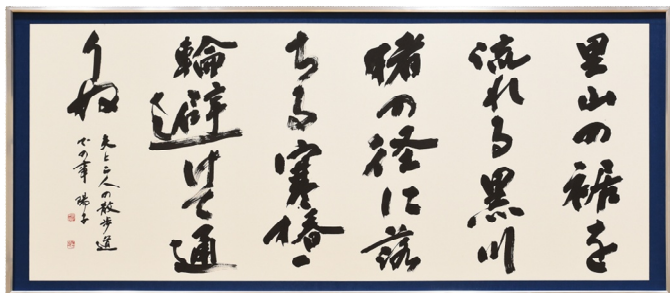 里山の裾を
流れる黒川
猪の径に落
ちる寒椿一
輪避けて通
りぬ
夫と二人の散歩道
での事